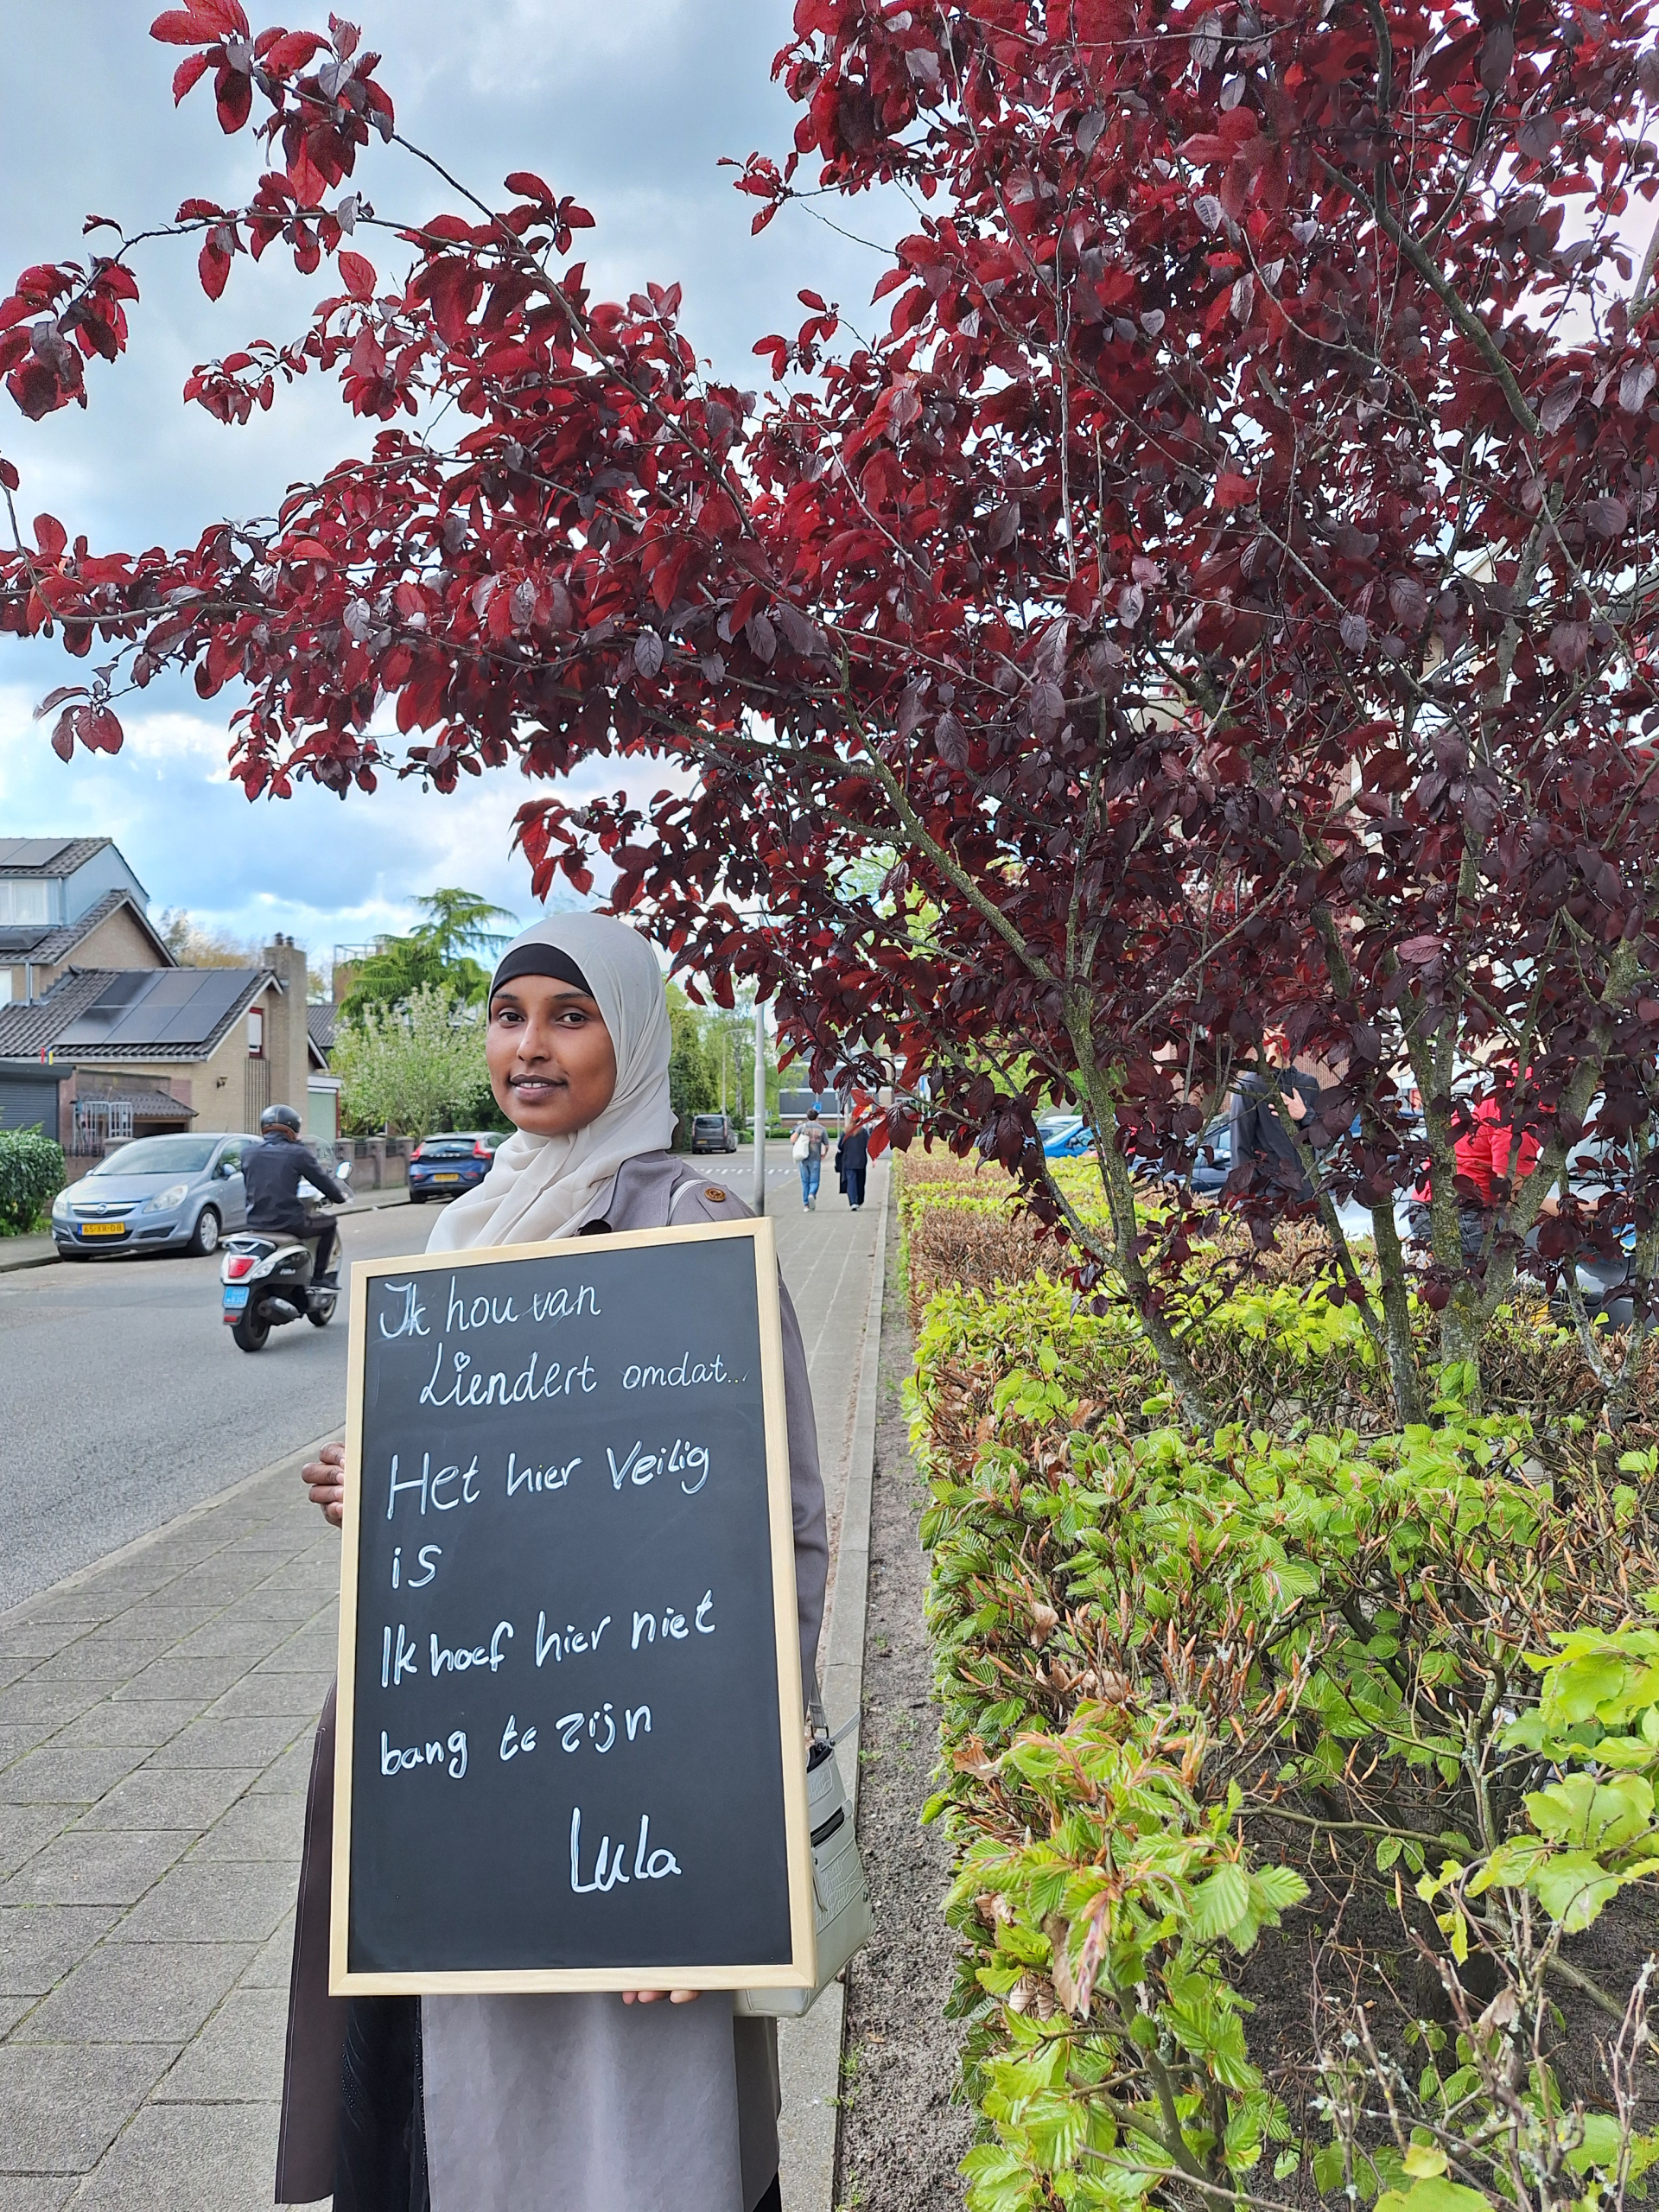 Ik hou van
Liendert omdat...
Het hier Veilig
is
Ik hoef hier niet
bang te zijn
Lula